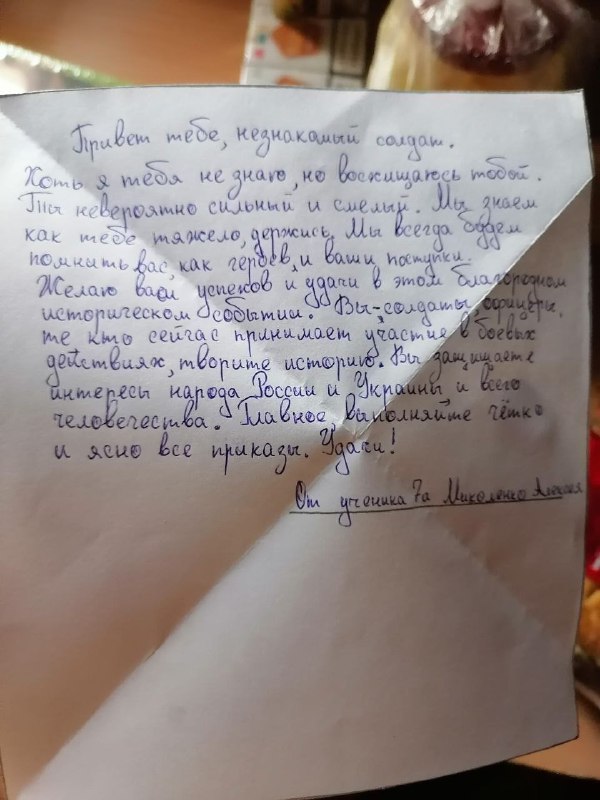 Привет тебе, незнакамый солдат.
Хоть я тебя не знаю, но восхищаюсь тобой.
Ты невероятно сильный и смелый. Мы знаем
как тебе тяжело, держись. Мы всегда будем
помнить вас, как героев, и ваши поступки.
Желаю вам успехов и удачи в этом благородном
историческом событии. Вы-солдаты, офицеры,
те кто сейчас принимает участие в боевых
действиях, творите историю. Вы защищаете
интересы народа России и Украины и всего
человечества. Главное, выполняйте чётко
и ясно все приказы. Удачи!
От ученика 7а Миколенко Алексея